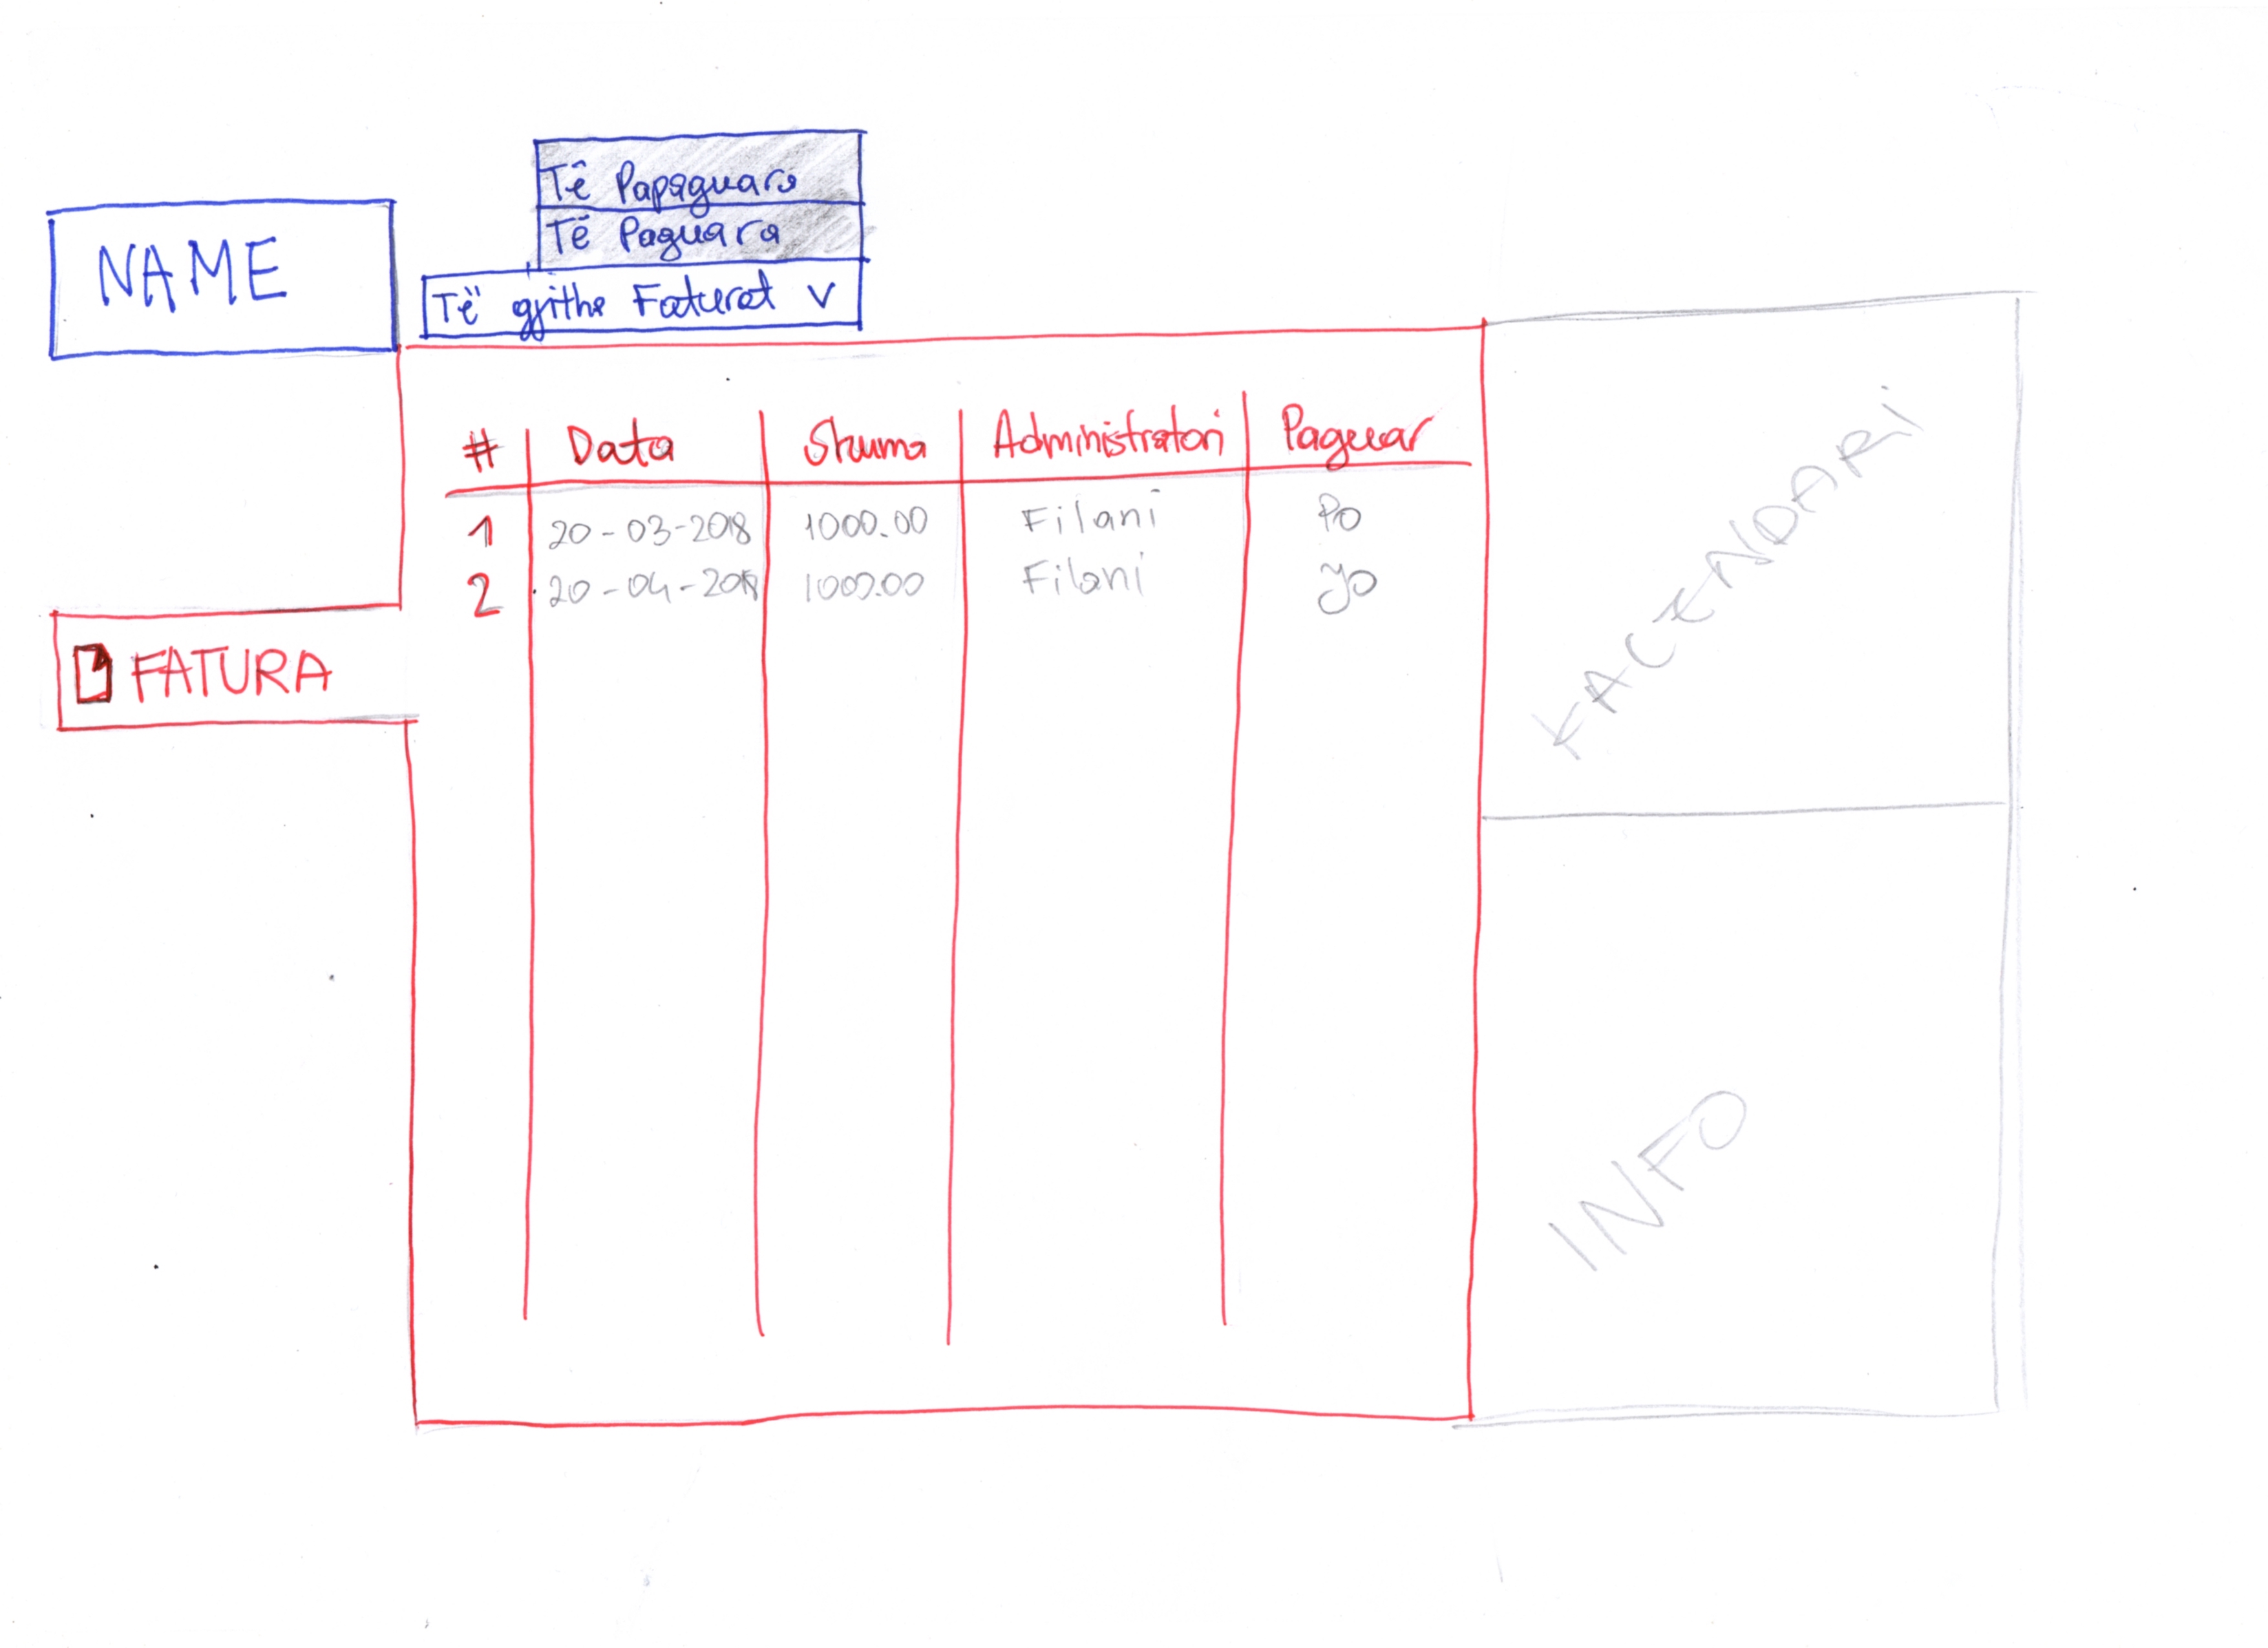 Të Papaguara
Të Paguara
NAME
Të gjitha Faturat v
# Data Shuma Administratori Paguar
1 20-03-2018 1000.00 Filani Po
2 20-04-2018 1000.00 Filani Jo
FATURA
INFO